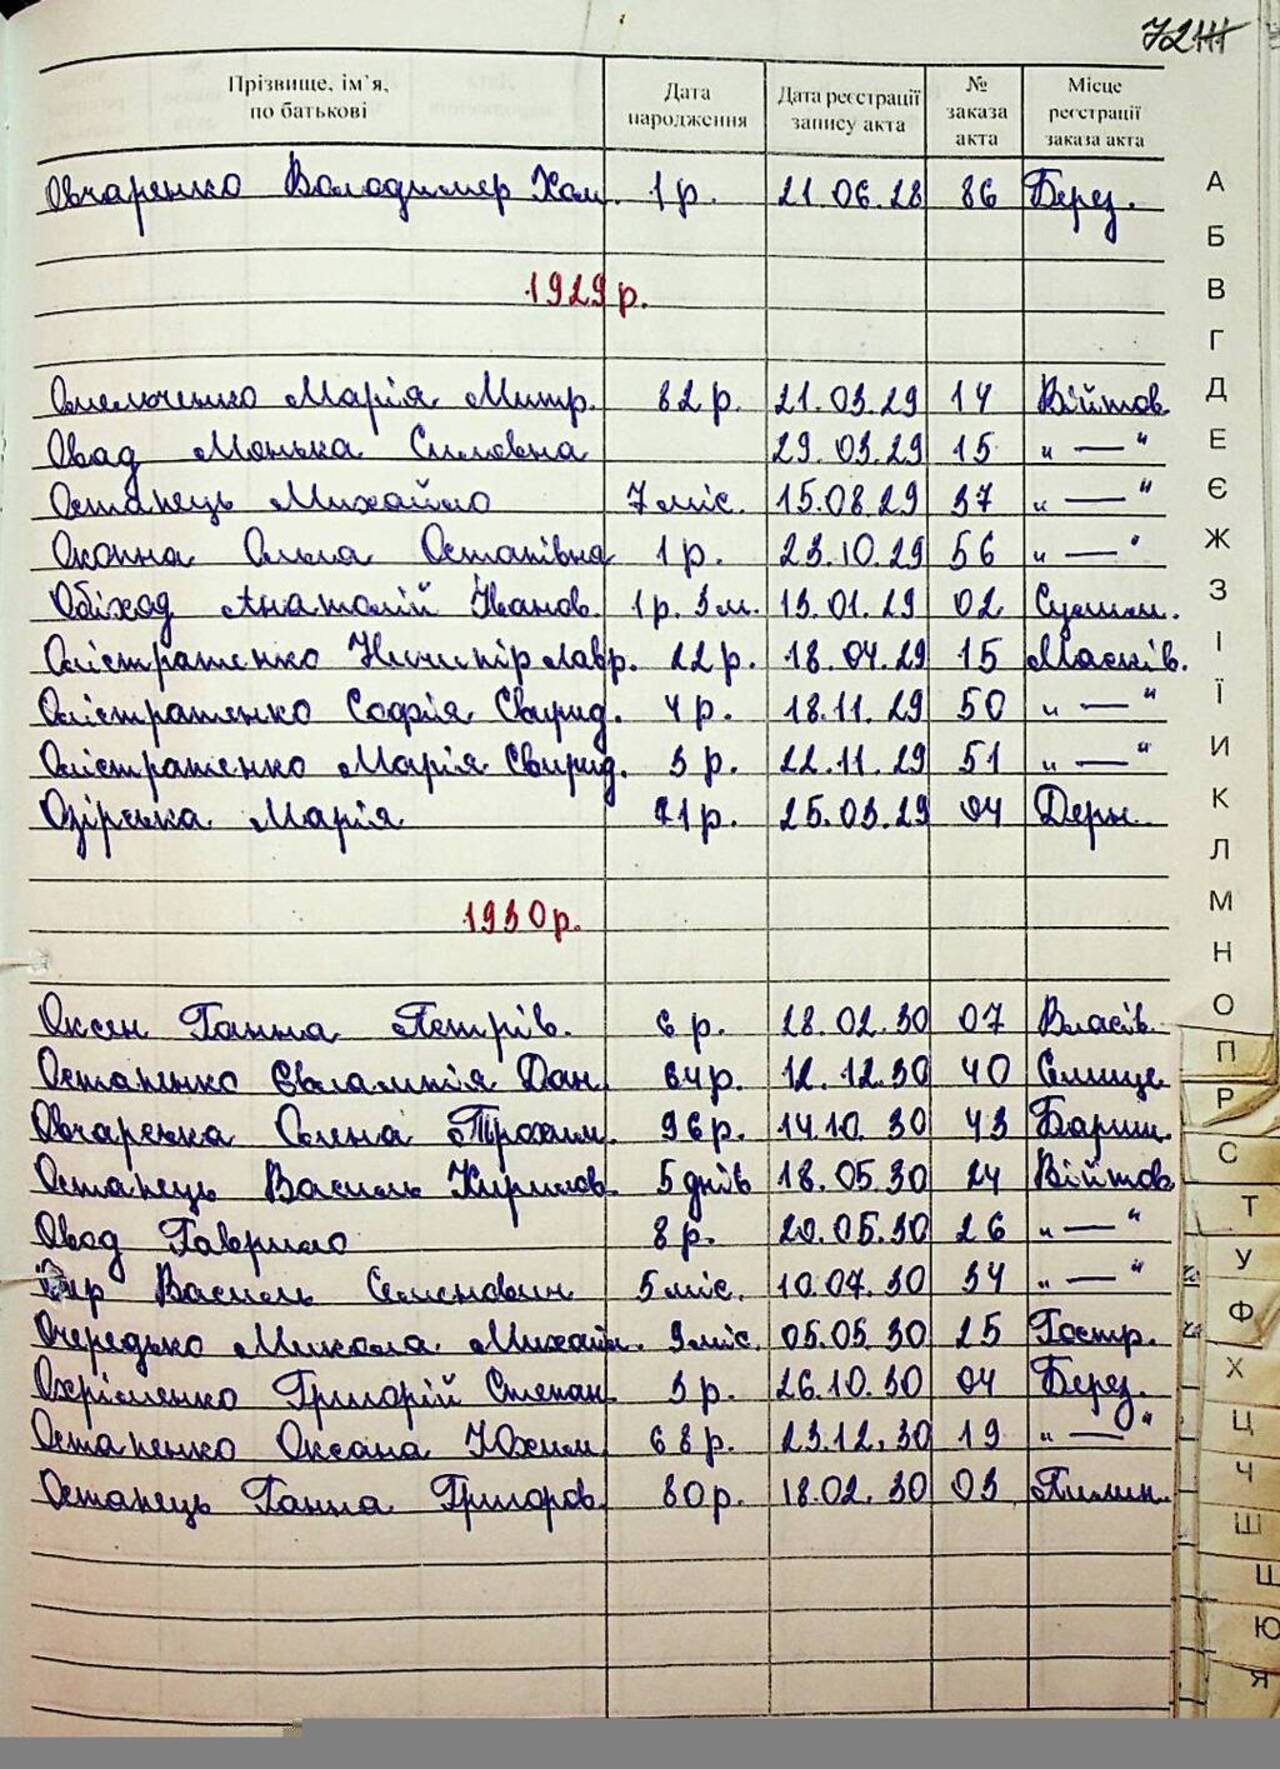 72
Прізвище, ім'я, по батькові | Дата народження | Дата реєстрації запису акта | № заказа акта | Місце реєстрації заказа акта
Овчаренко Володимер Хом. 1 р. 21.06.28 86 Берез.
1929 р.
Омельченко Марія Митр. 82 р. 21.03.29 14 Війтов
Овад Монька Силовна 29.03.29 15 „ — “
Останець Михайло 7 міс. 15.08.29 37 „ — “
Окопна Ольга Остапівна 1 р. 23.10.29 56 „ — “
Обіход Анатолій Іванов. 1 р. 3 м. 13.01.29 02 Сулим.
Олістратенко Ничипір Лавр. 22 р. 18.04.29 15 Маскív.
Олістратенко Софія Свирид. 4 р. 18.11.29 50 „ — “
Олістратенко Марія Свирид. 3 р. 22.11.29 51 „ — “
Озірська Марія 71 р. 25.03.29 04 Дерн.
1930 р.
Оксен Ганна Петрів. 6 р. 28.02.30 07 Власів.
Остапенко Євлампія Дан. 64 р. 12.12.30 40 Селище
Овчарська Олена Трохим. 96 р. 14.10.30 43 Бариш.
Останець Василь Кирилов. 5 днів 18.05.30 24 Війтов
Овод Гаврило 8 р. 20.05.30 26 „ — “
Василь Семенович 5 міс. 10.07.30 34 „ — “
Очередько Микола Михайл. 9 міс. 05.05.30 25 Гостр.
Охріменко Григорій Степан. 3 р. 26.10.30 04 Берез.
Остапенко Оксана Юхим. 68 р. 23.12.30 19 „ — “
Останець Ганна Григоров. 80 р. 18.02.30 03 Пилип.
А
Б
В
Г
Д
Е
Є
Ж
З
І
Ї
И
К
Л
М
Н
О
П
Р
С
Т
У
Ф
Х
Ц
Ч
Ш
Щ
Ю
Я